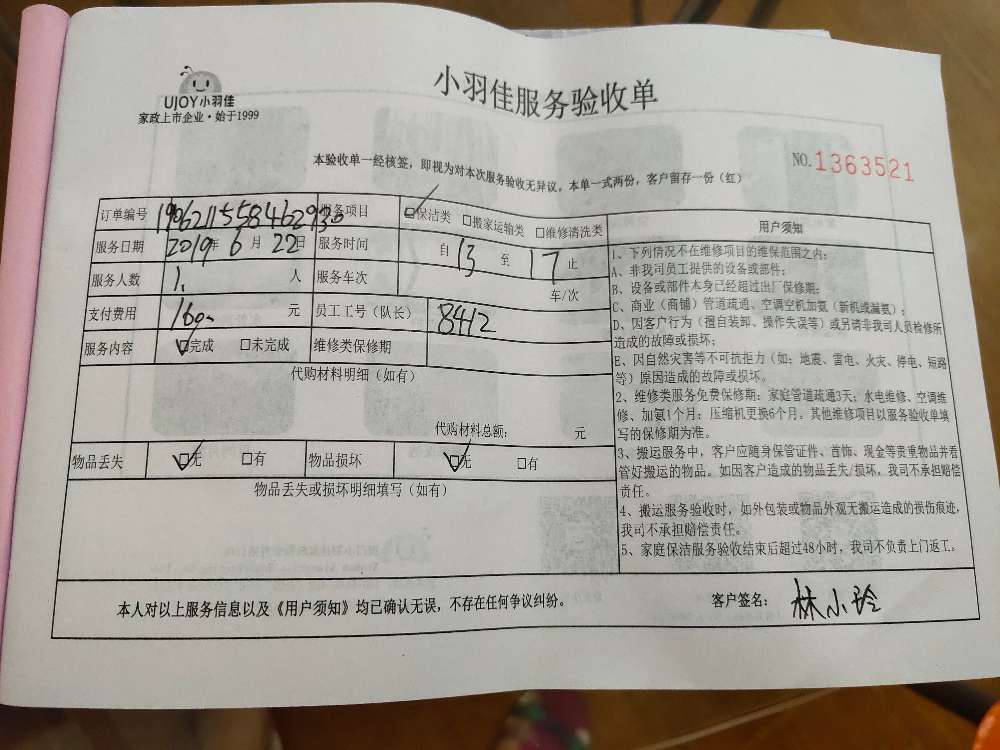 小羽佳服务验收单
UJOY小羽佳
家政上市企业·始于1999
本验收单一经核签，即视为对本次服务验收无异议。本单一式两份，客户留存一份（红）
NO.1363521
订单编号 服务项目 ☑保洁类 □搬家运输类 □维修清洗类
服务日期 2019年 6月 22日 服务时间 自 13 至 17 止
服务人数 1. 人 服务车次 车/次
支付费用 160 元 员工工号（队长） 8412
服务内容 ☑完成 □未完成 维修类保修期
代购材料明细（如有）
代购材料总额： 元
物品丢失 ☑无 □有 物品损坏 ☑无 □有
物品丢失或损坏明细填写（如有）
用户须知
1、下列情况不在维修项目的维保范围之内：
A、非我司员工提供的设备或部件；
B、设备或部件本身已经超过出厂保修期；
C、商业（商铺）管道疏通、空调空机加氨（新机或漏氨）；
D、因客户行为（擅自装卸、操作失误等）或另请非我司人员检修所
造成的故障或损坏；
E、因自然灾害等不可抗拒力（如：地震、雷电、火灾、停电、短路
等）原因造成的故障或损坏。
2、维修类服务免费保修期：家庭管道疏通3天；水电维修、空调维
修、加氨1个月；压缩机更换6个月。其他维修项目以服务验收单填
写的保修期为准。
3、搬运服务中，客户应随身保管证件、首饰、现金等贵重物品并看
管好搬运的物品。如因客户造成的物品丢失/损坏，我司不承担赔偿
责任。
4、搬运服务验收时，如外包装或物品外观无搬运造成的损伤痕迹，
我司不承担赔偿责任。
5、家庭保洁服务验收结束后超过48小时，我司不负责上门返工。
本人对以上服务信息以及《用户须知》均已确认无误，不存在任何争议纠纷。
客户签名： 林小玲